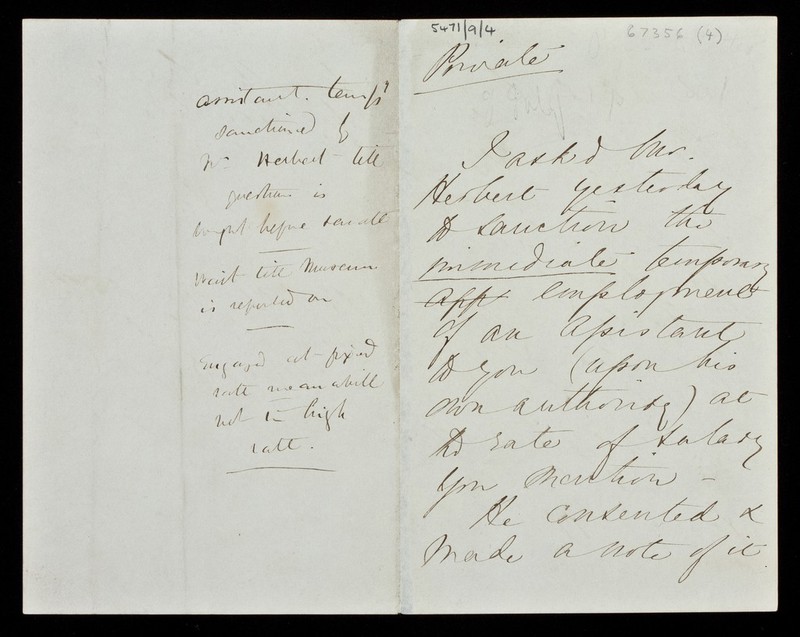 assistant. temp^y
sanctioned by
Mr Herbert - till
question is
brought before senate
Wait till Museum
is reported on
Engaged at fixed
rate meanwhile
not in high
rate.
5471/9/4
67356 (4)
Private
I asked Mr.
Herbert yesterday
to sanction the
immediate temporary
app^t employment
of an Assistant
to you (upon his
own authority) at
the rate of salary
you mention -
He consented &
made a note of it.